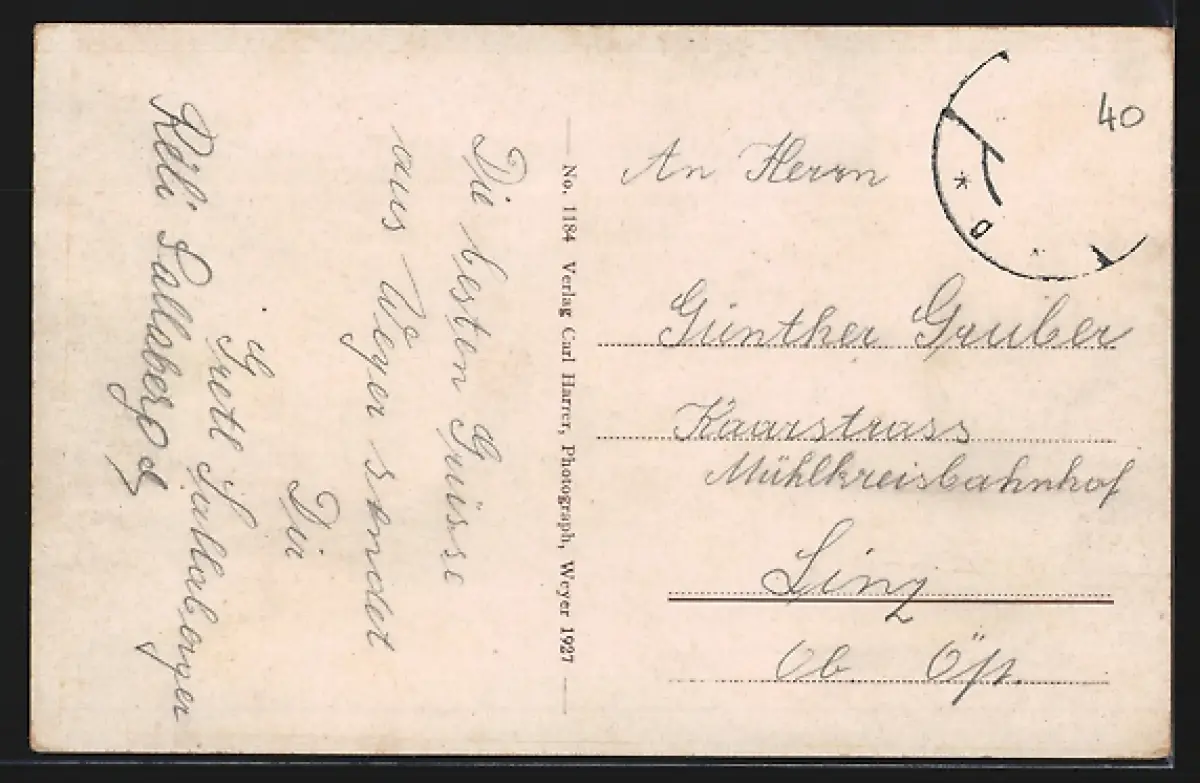 Die besten Grüsse
aus Weyer sendet
Dir
Gretl Sallaberger
No. 1184 Verlag Carl Harrer, Photograph, Weyer 1927
40
An Herrn
Günther Gruber
Kaarstrass
Mühlkreisbahnhof
Linz
Ob. Öst.